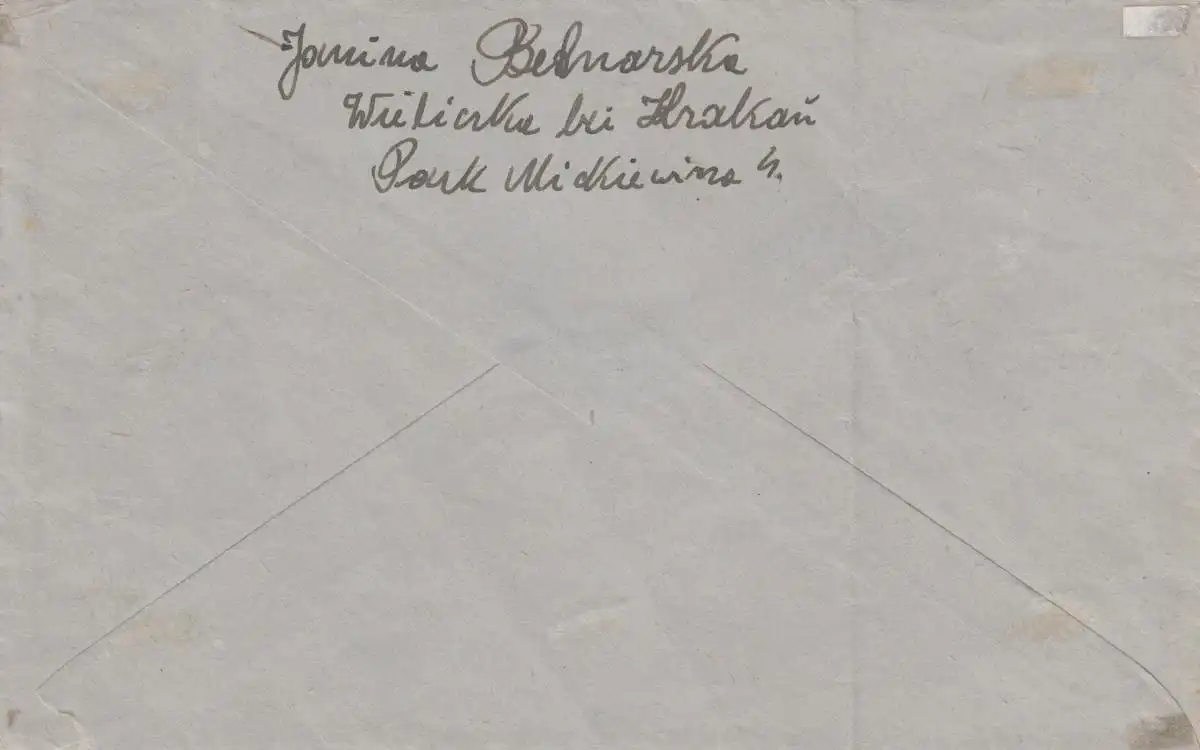 Janina Bednarska
Wieliczka bei Krakau
Park Mickiewicza 4.